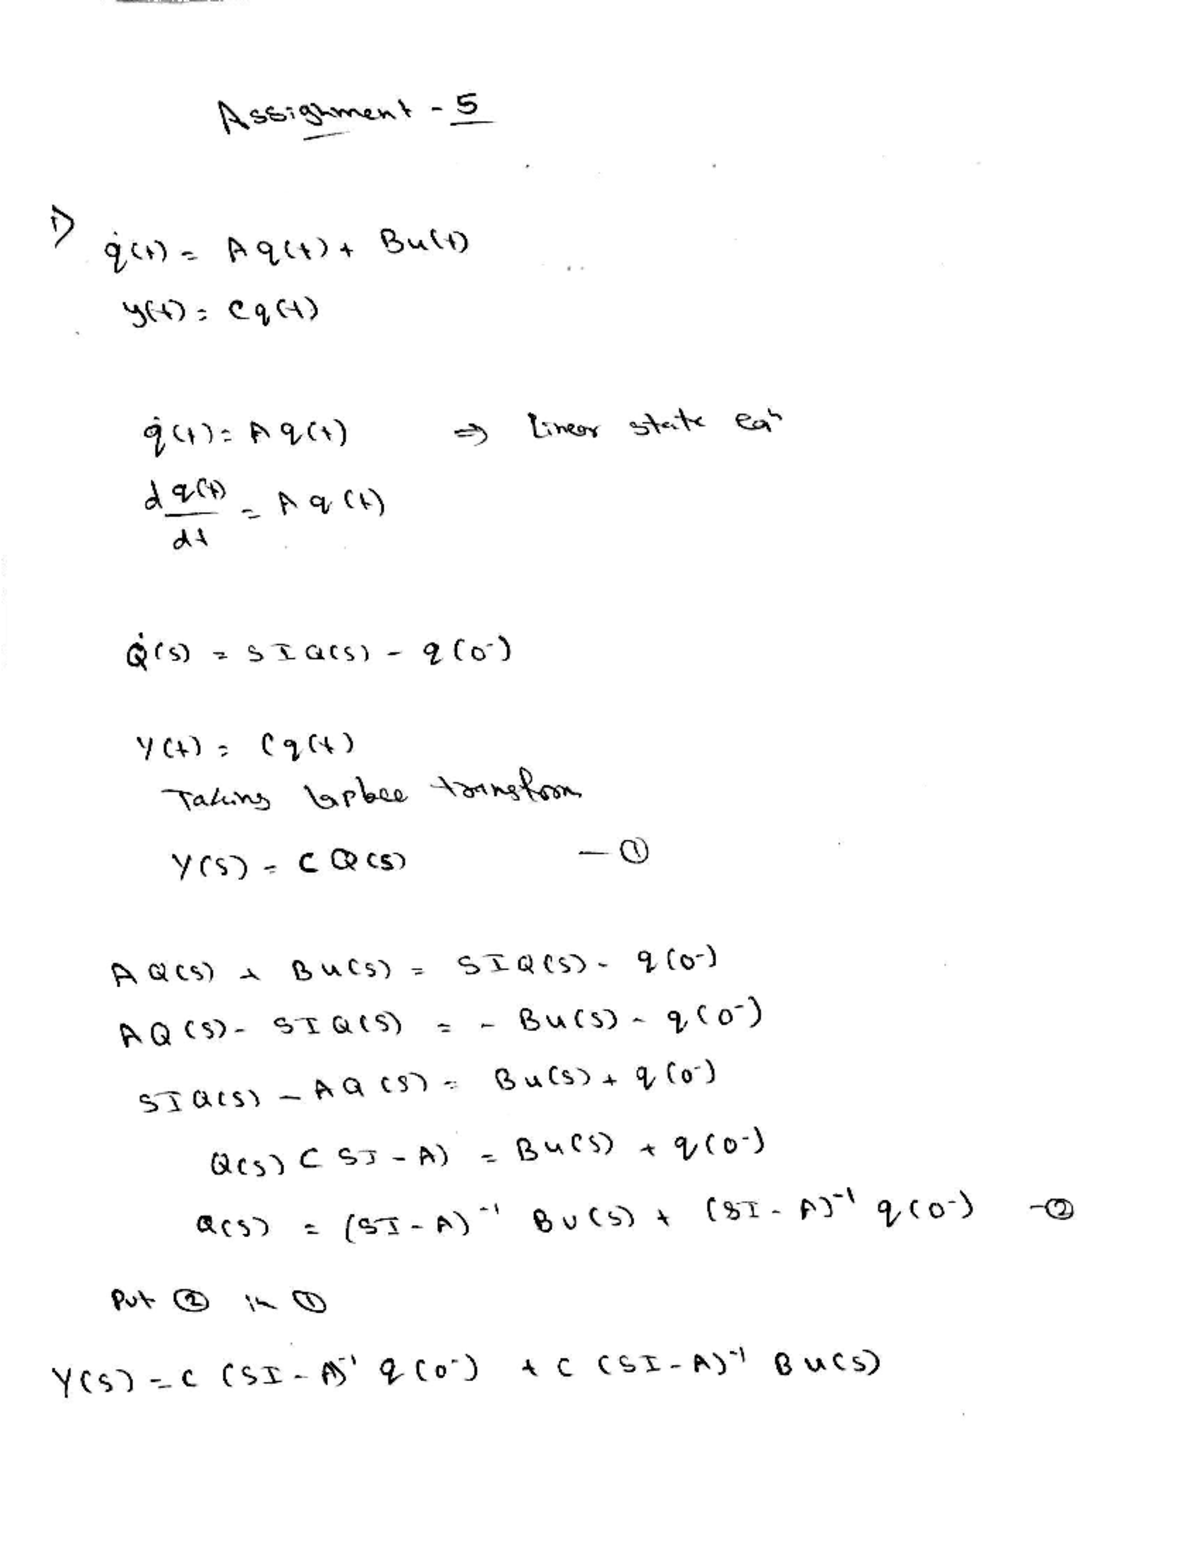 Assignment - 5
1) q̇(t) = A q(t) + Bu(t)
y(t) = Cq(t)
q̇(t) = A q(t) ⇒ Linear state eqn
dq(t)/dt = A q(t)
Q̇(s) = SIQ(s) - q(0⁻)
Y(t) = Cq(t)
Taking laplace transform
Y(s) = C Q(s) — ①
AQ(s) + BU(s) = SIQ(s) - q(0⁻)
AQ(s) - SIQ(s) = - BU(s) - q(0⁻)
SIQ(s) - AQ(s) = BU(s) + q(0⁻)
Q(s) (SI - A) = BU(s) + q(0⁻)
Q(s) = (SI - A)⁻¹ BU(s) + (SI - A)⁻¹ q(0⁻) — ②
Put ② in ①
Y(s) = C (SI - A)⁻¹ q(0⁻) + C (SI - A)⁻¹ BU(s)